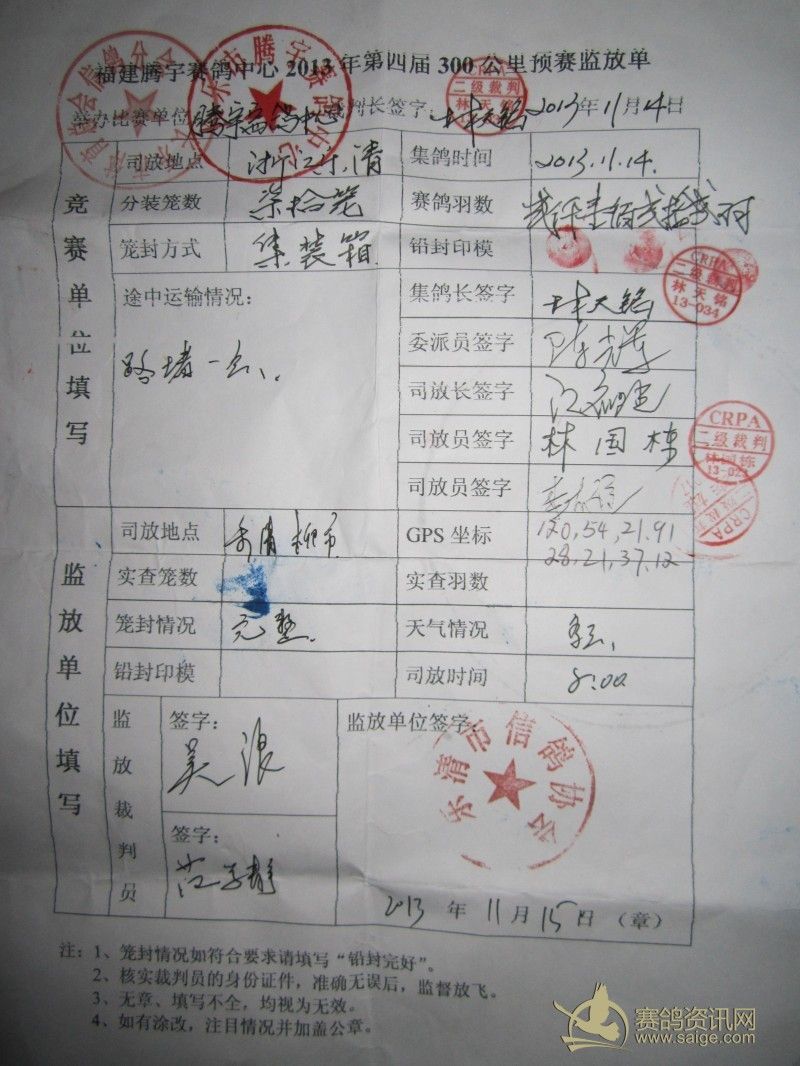 福建腾宇赛鸽中心2013年第四届300公里预赛监放单
举办比赛单位 腾宇赛鸽中心 裁判长签字: 林天铭 2013年11月14日
竞赛单位填写
司放地点 浙江乐清 集鸽时间 2013.11.14.
分装笼数 柒拾笼 赛鸽羽数 贰仟壹佰贰拾贰羽
笼封方式 集装箱 铅封印模
途中运输情况: 集鸽长签字 林天铭
路堵一会、 委派员签字
司放长签字
司放员签字 林国栋
司放员签字
监放单位填写
司放地点 乐清柳市 GPS 坐标 120,54,21.91
28,21,37.12
实查笼数 实查羽数
笼封情况 完整. 天气情况
铅封印模 司放时间 8:00
监放裁判员
签字: 吴浪 监放单位签字
签字: 范子静
2013年11月15日(章)
注:1、笼封情况如符合要求请填写“铅封完好”。
2、核实裁判员的身份证件,准确无误后,监督放飞。
3、无章、填写不全,均视为无效。
4、如有涂改,注目情况并加盖公章。
乐清市信鸽协会
乐市腾宇赛鸽中心
信鸽分会
二级裁判
林天铭
CRPA
二级裁判
林天铭
13-034
CRPA
二级裁判
林国栋
13-02
CRPA
赛鸽资讯网
www.saige.com